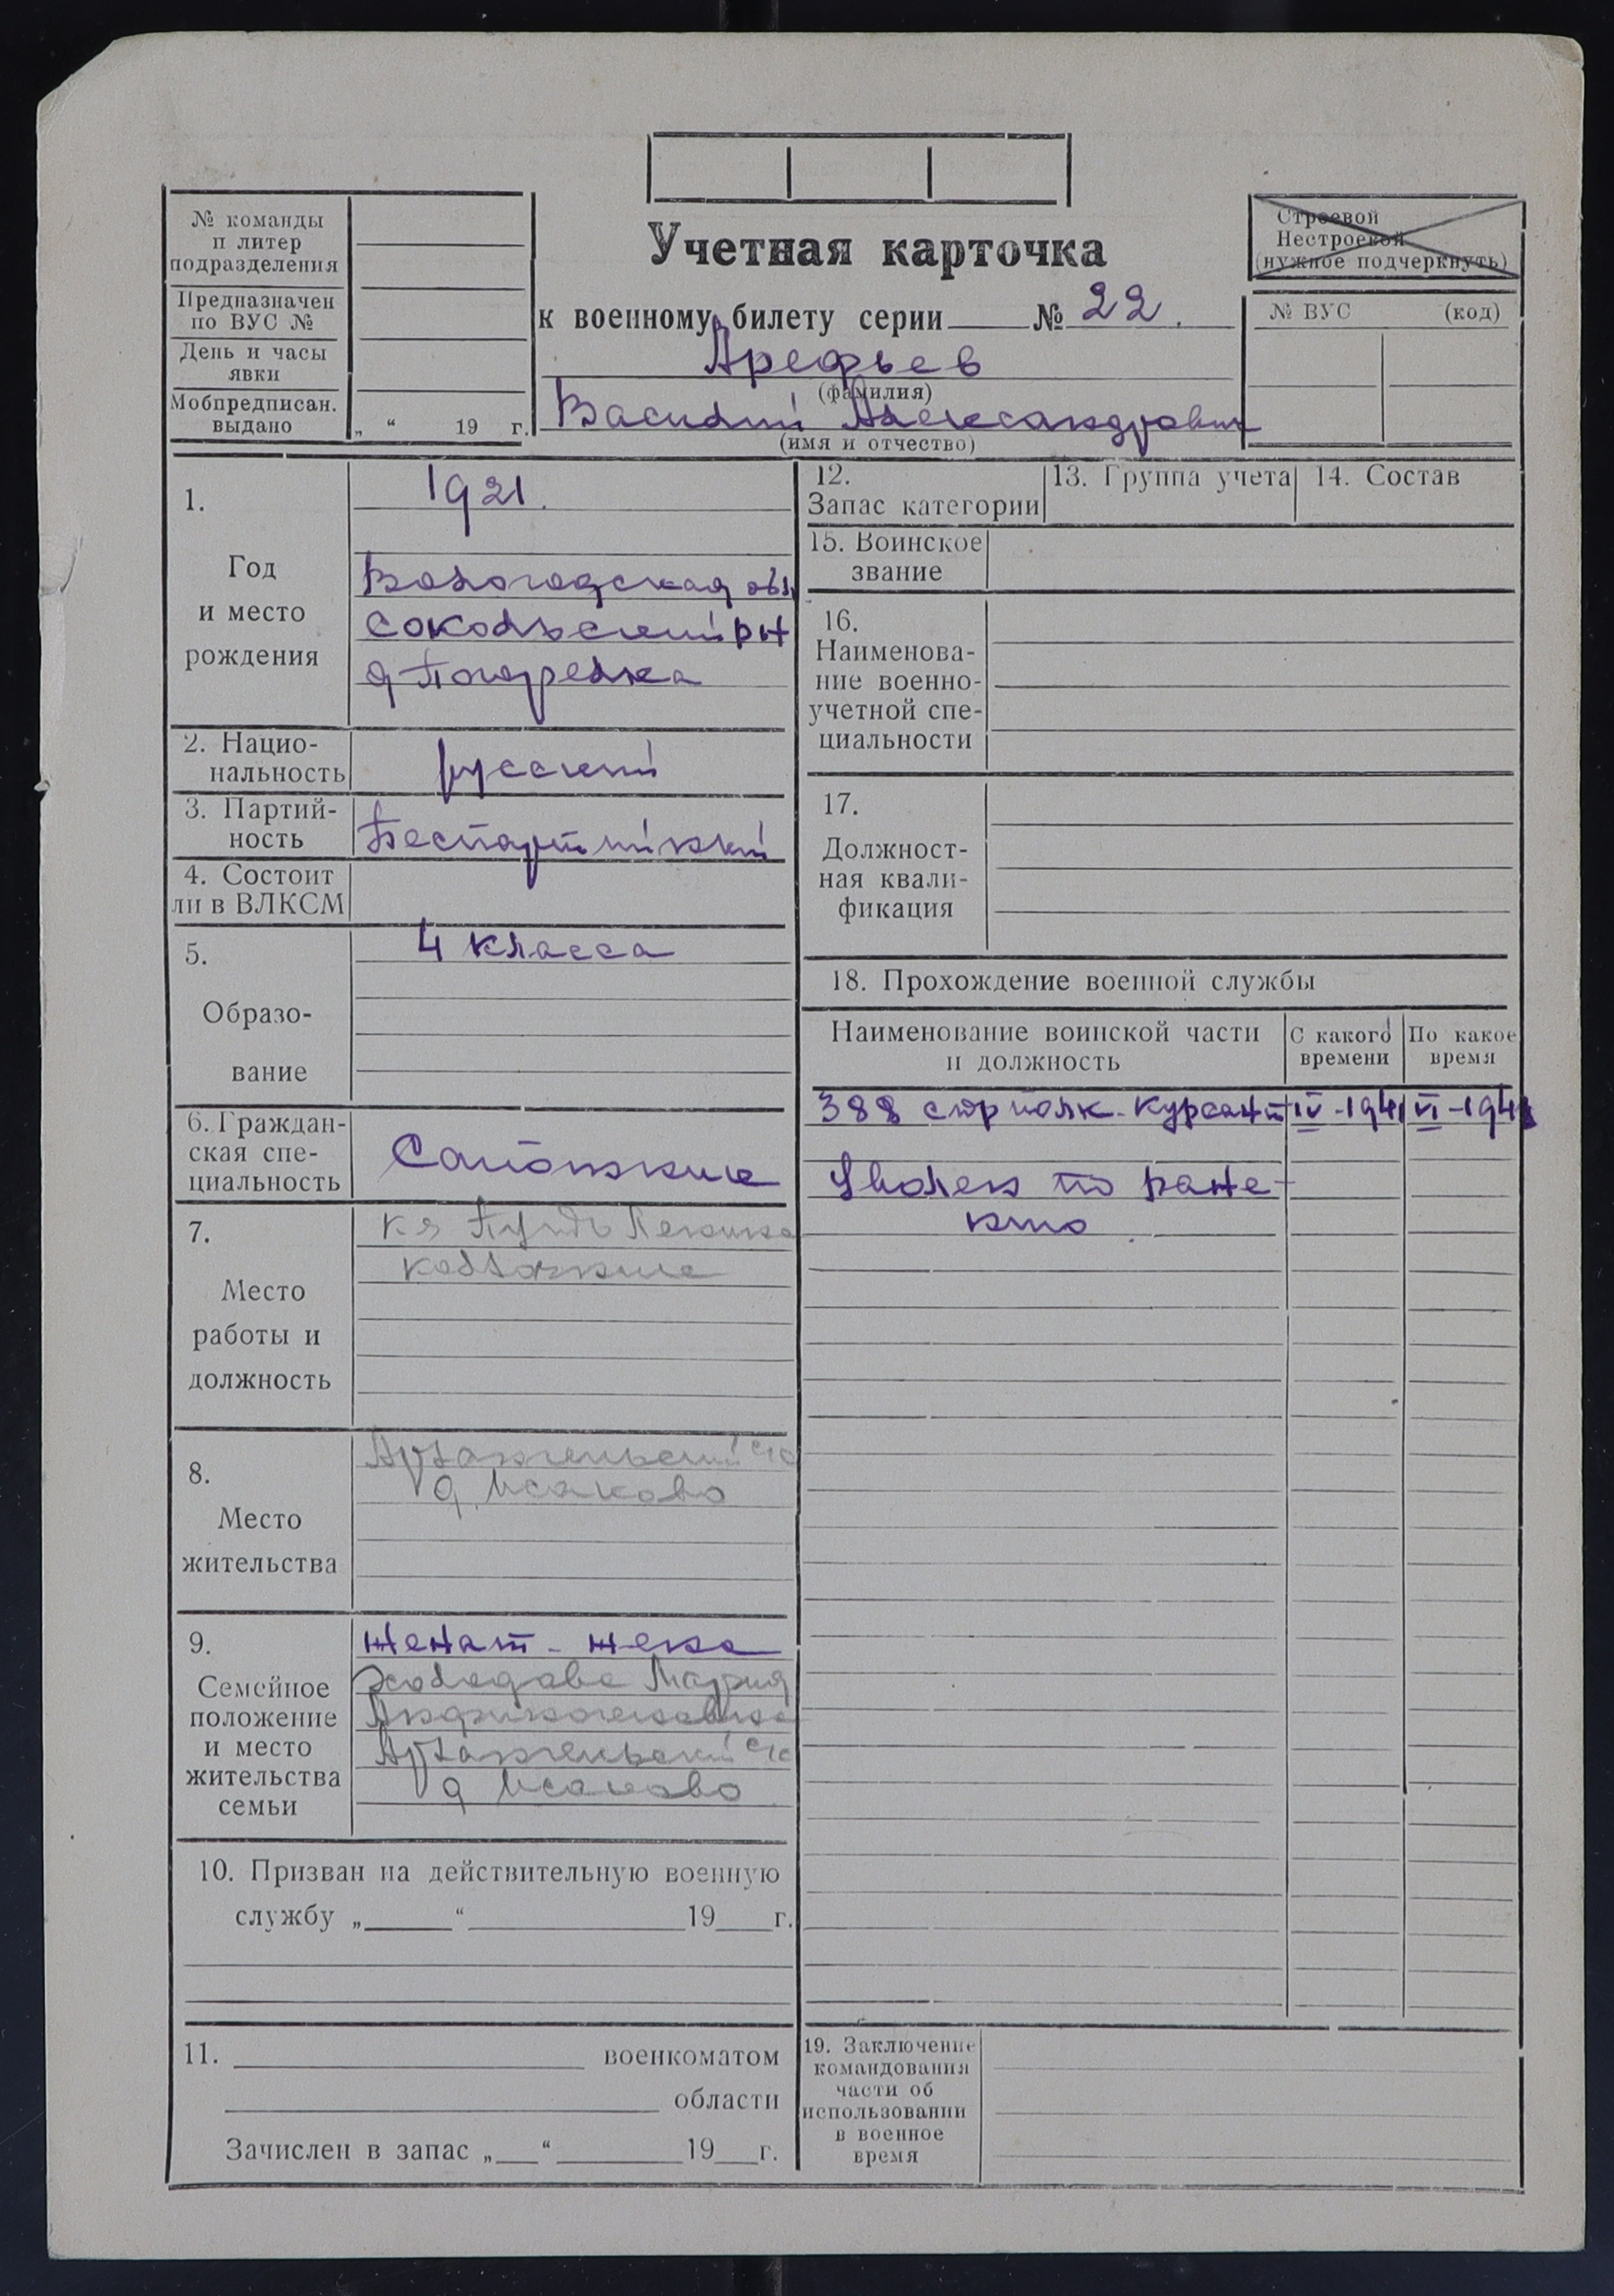 № команды
п литер
подразделения
Предназначен
по ВУС №
День и часы
явки
Мобпредписан.
выдано
„ “ 19 г.
Учетная карточка
к военному билету серии № 22.
Арефьев
(фамилия)
Василий Александрович
(имя и отчество)
Строевой
Нестроевой
(нужное подчеркнуть)
№ ВУС (код)
1.
Год
и место
рождения
1921.
Вологодская обл
Сокольский р-н
д Погорелка
2. Нацио-
нальность
русский
3. Партий-
ность
Беспартийный
4. Состоит
ли в ВЛКСМ
5.
Образо-
вание
4 класса
6. Граждан-
ская спе-
циальность
Сапожник
7.
Место
работы и
должность
к-з Путь Ленина
колхозник
8.
Место
жительства
д. Исаково
9.
Семейное
положение
и место
жительства
семьи
женат - жена
Мария
д Исаково
10. Призван на действительную военную
службу „ “ 19 г.
11. военкоматом
области
Зачислен в запас „ “ 19 г.
12.
Запас категории
13. Группа учета
14. Состав
15. Воинское
звание
16.
Наименова-
ние военно-
учетной спе-
циальности
17.
Должност-
ная квали-
фикация
18. Прохождение военной службы
Наименование воинской части
и должность
С какого
времени
По какое
время
388 стр полк - курсант IV-1941 VI-1941
Уволен по ране-
нию
19. Заключение
командования
части об
использовании
в военное
время